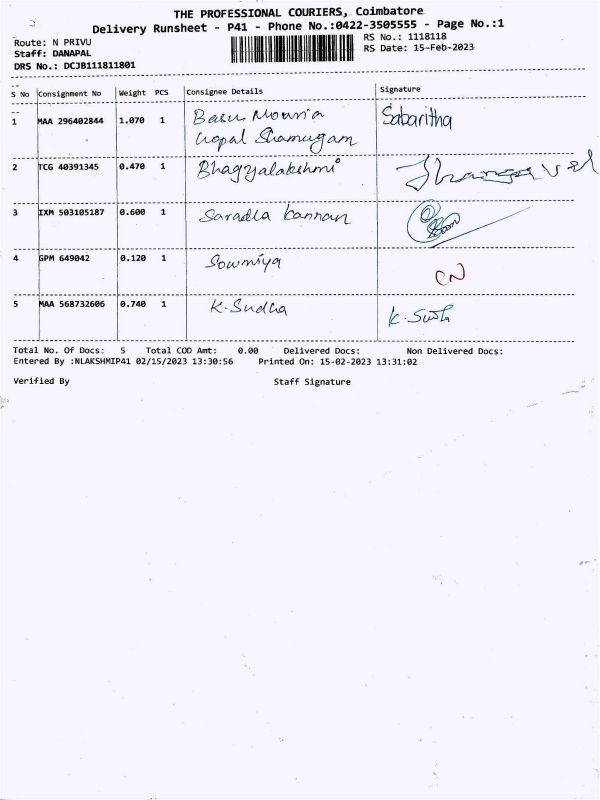 THE PROFESSIONAL COURIERS, Coimbatore
Delivery Runsheet - P41 - Phone No.:0422-3505555 - Page No.:1
Route: N PRIVU RS No.: 1118118
Staff: DANAPAL RS Date: 15-Feb-2023
DRS No.: DCJB111811801
S No Consignment No Weight PCS Consignee Details Signature
1 MAA 296402844 1.070 1 Basu Mouria Sabaritha
Gopal Shamugam
2 TCG 40391345 0.470 1 Bhagyalakshmi
3 IXM 503105187 0.600 1 Saradha kannan
4 GPM 649042 0.120 1 Sowmiya CN
5 MAA 568732606 0.740 1 K.Sudha K.Sudha
Total No. Of Docs: 5 Total COD Amt: 0.00 Delivered Docs: Non Delivered Docs:
Entered By :NLAKSHMIP41 02/15/2023 13:30:56 Printed On: 15-02-2023 13:31:02
Verified By Staff Signature